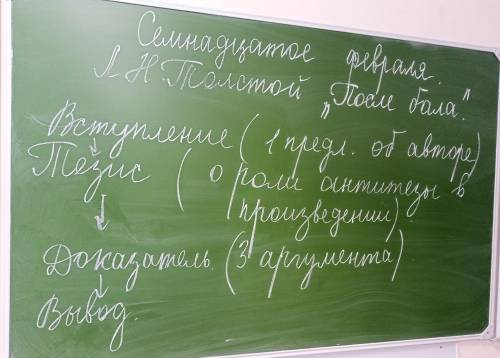 Семнадцатое февраля.
Л.Н.Толстой „После бала."
Вступление (1 предл. об авторе)
↓
Тезис (о роли антитезы в
произведении)
↓
Доказатель. (3 аргумента)
↓
Вывод.